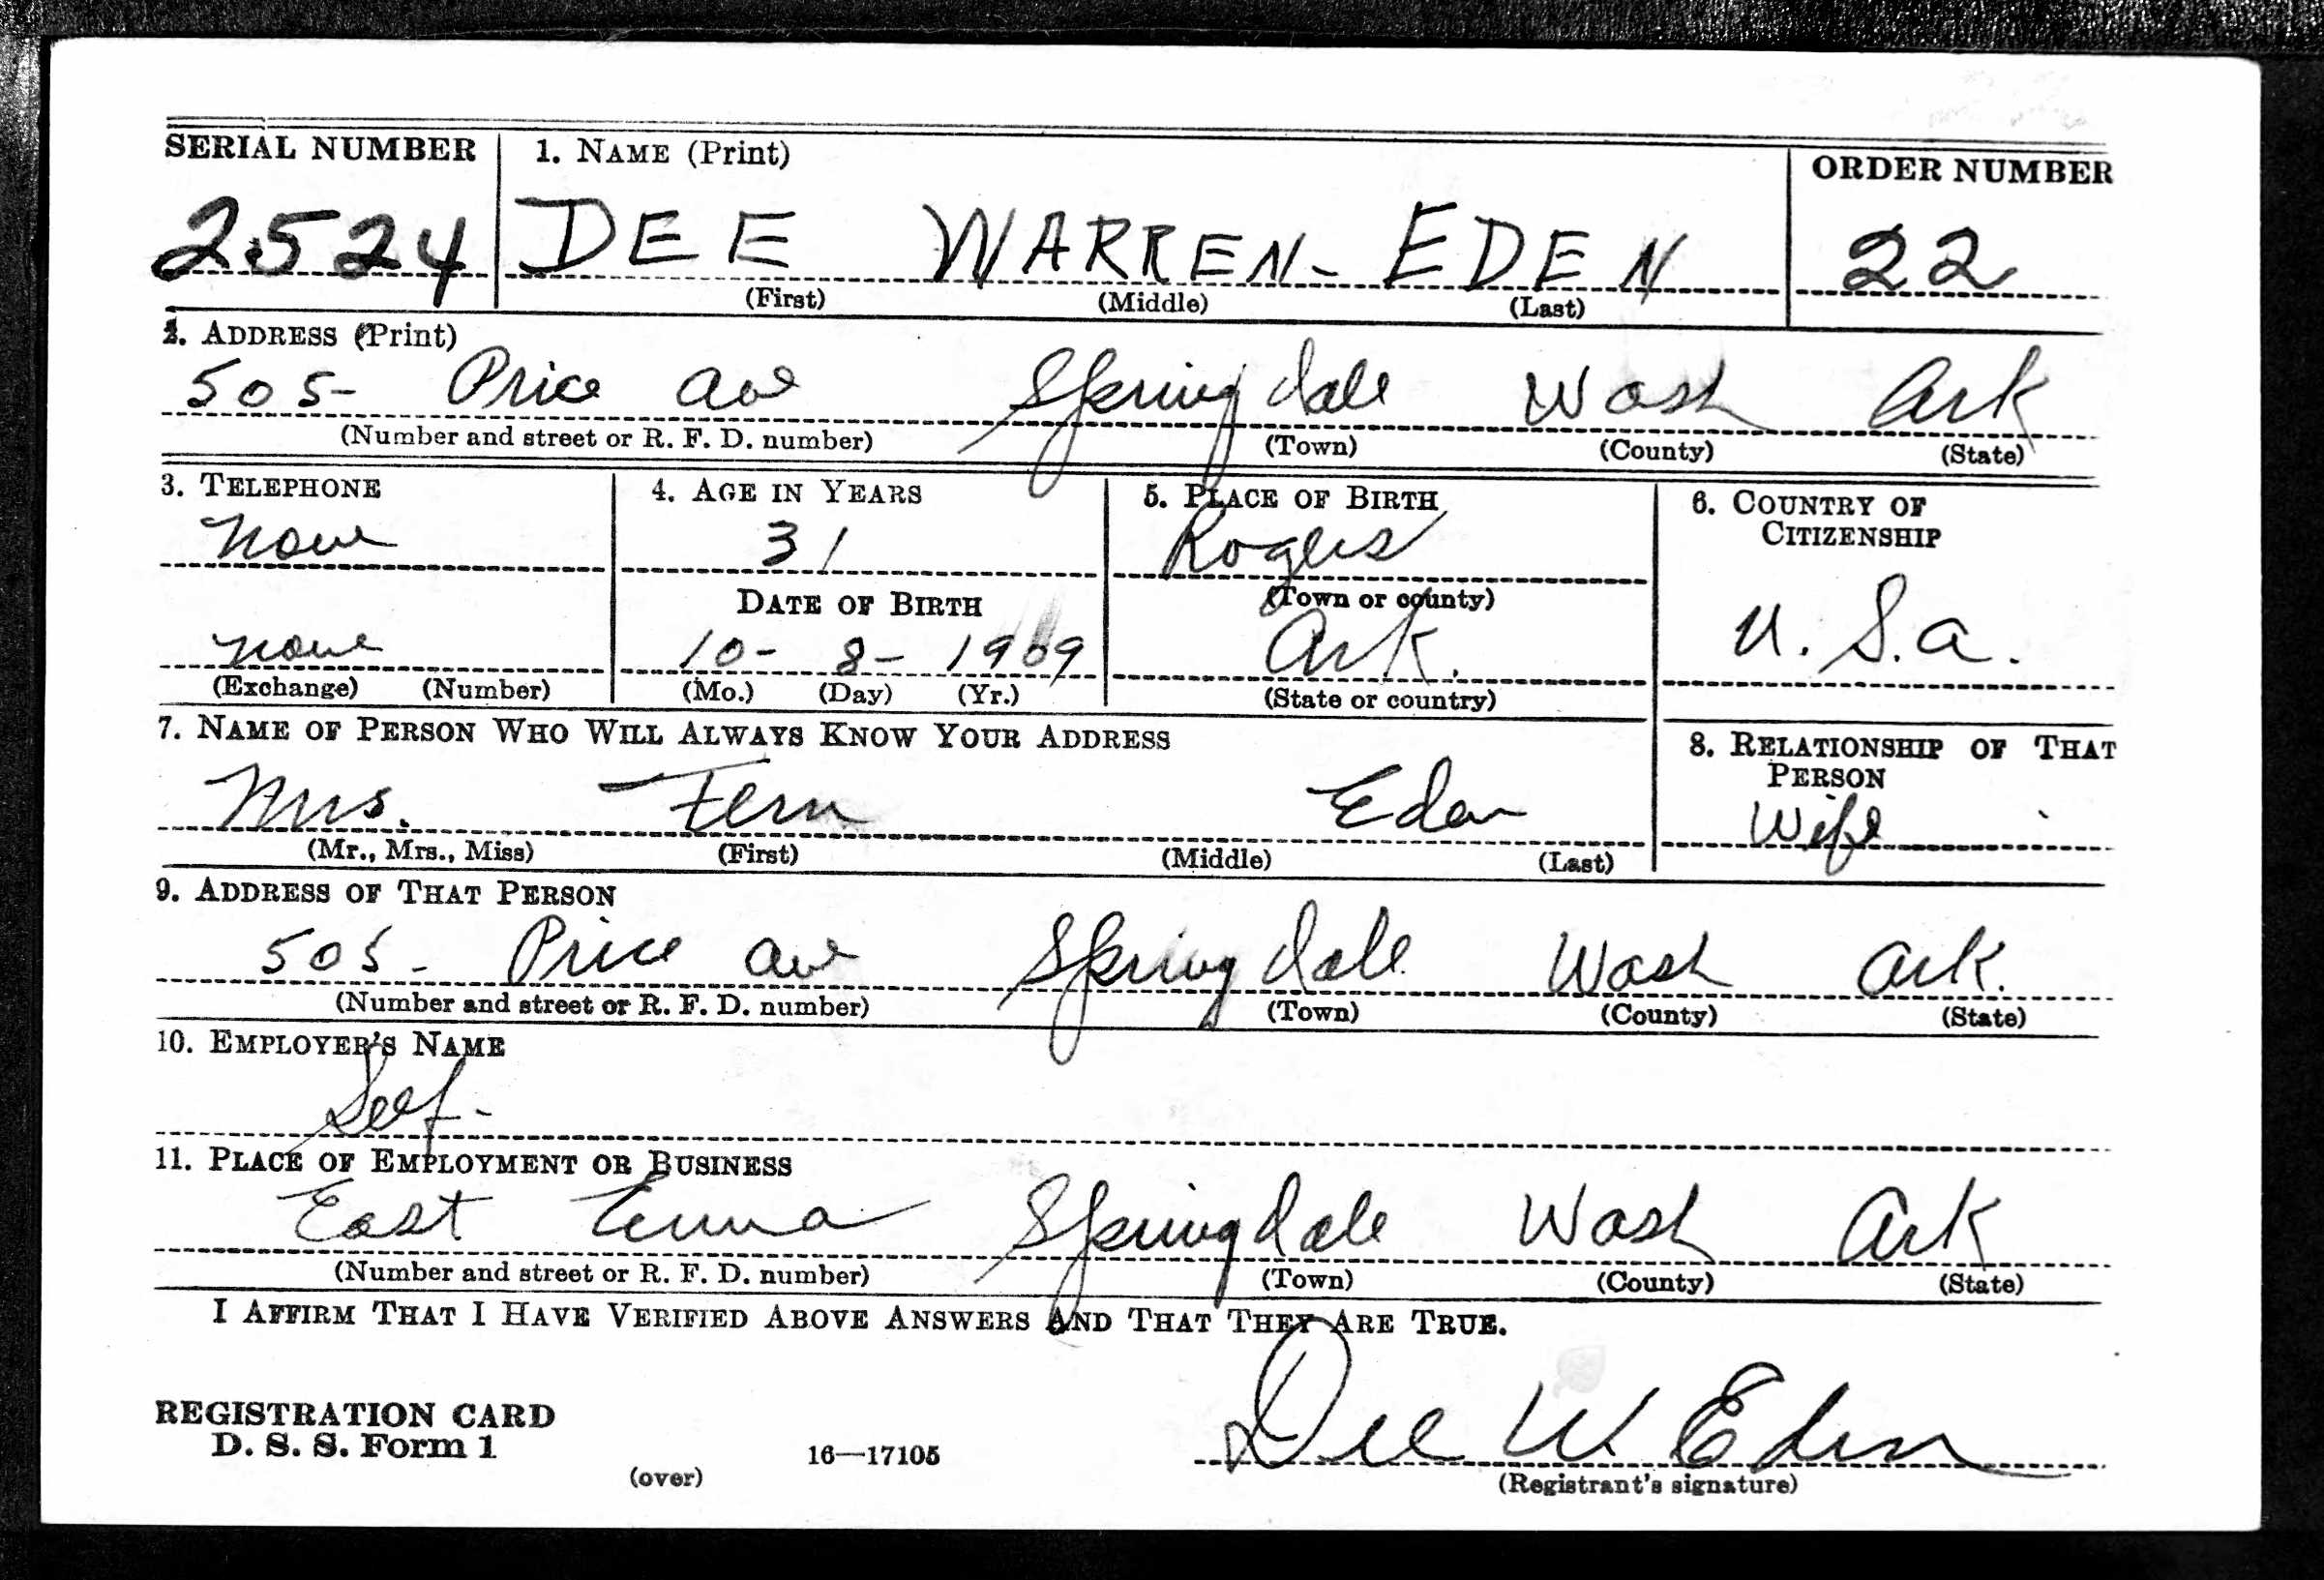 SERIAL NUMBER 1. NAME (Print) ORDER NUMBER
2524 DEE WARREN- EDEN 22
(First) (Middle) (Last)
2. ADDRESS (Print)
505- Price Ave Springdale Wash Ark
(Number and street or R. F. D. number) (Town) (County) (State)
3. TELEPHONE 4. AGE IN YEARS 5. PLACE OF BIRTH 6. COUNTRY OF CITIZENSHIP
None 31 Rogers
DATE OF BIRTH (Town or county)
none 10- 8- 1909 Ark. U. S. a.
(Exchange) (Number) (Mo.) (Day) (Yr.) (State or country)
7. NAME OF PERSON WHO WILL ALWAYS KNOW YOUR ADDRESS 8. RELATIONSHIP OF THAT PERSON
Mrs. Fern Eden Wife
(Mr., Mrs., Miss) (First) (Middle) (Last)
9. ADDRESS OF THAT PERSON
505- Price ave Springdale Wash Ark.
(Number and street or R. F. D. number) (Town) (County) (State)
10. EMPLOYER'S NAME
Self-
11. PLACE OF EMPLOYMENT OR BUSINESS
East Emma Springdale Wash Ark
(Number and street or R. F. D. number) (Town) (County) (State)
I AFFIRM THAT I HAVE VERIFIED ABOVE ANSWERS AND THAT THEY ARE TRUE.
REGISTRATION CARD
D. S. S. Form 1 16—17105 Dee W. Eden
(over) (Registrant's signature)